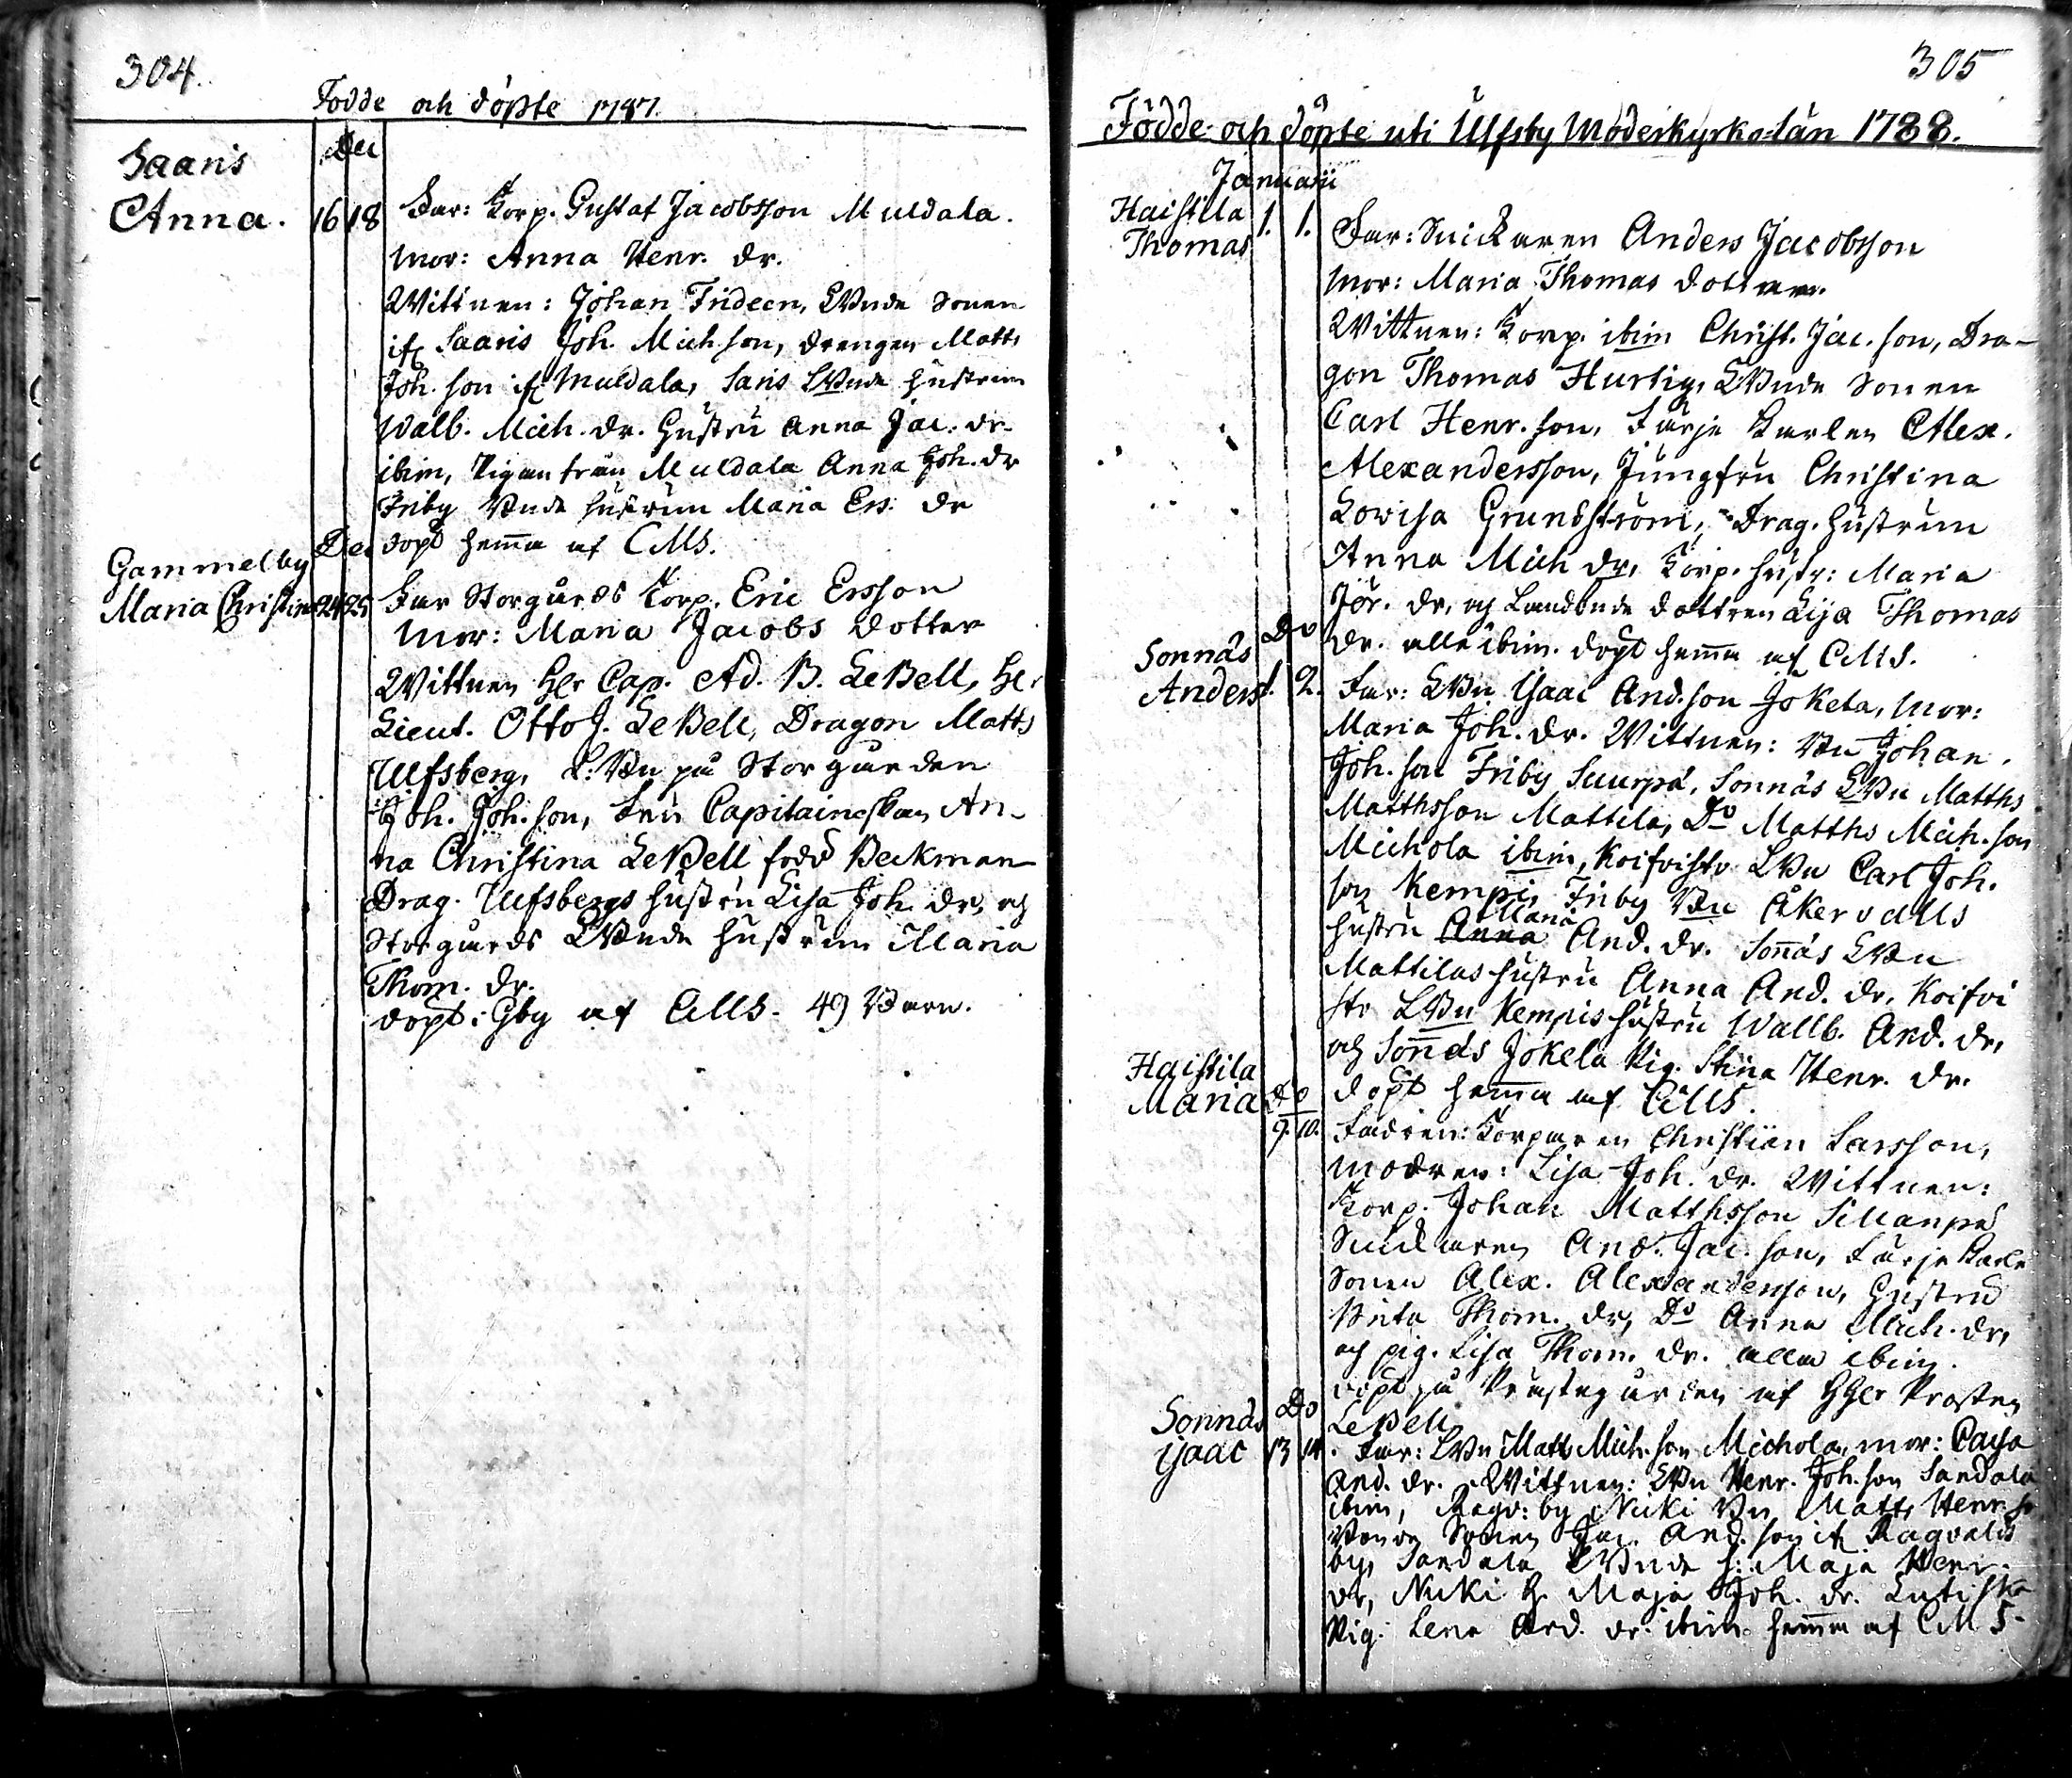 304.
Födde och döpte 1787.
Saaris
Anna.
Dec
16 18
Far: Torp. Gustaf Jacobsson Muldala.
Mor: Anna Henr. dr.
Wittnen: Johan Frideen, LBnde Sonen
if Saaris Joh. Mich son, drengen Matts
Joh. son if Muldala, Saris LBnde hustrun
Walb. Mich. dr. Hustru Anna Jac. dr
ibim, Pigan från Muldala Anna Joh. dr
Friby Bnde hustrun Maria Ers. dr
döpt hema af CMS.
Gammelby
Maria Christina
Dec
24 25
Far Storgårds Torp. Eric Ersson
Mor: Maria Jacobs dotter
Wittnen Hr Cap. Ad. B. LeBell, Hr
Lieut. Otto J. LeBell, Dragon Matts
Ulfsberg, L:Bn på Storgården
Joh. Joh. son, Fru Capitainskan An-
na Christina LeBell född Beckman
Drag. Ulfsbergs hustru Lisa Joh. dr, och
Storgårds LBnde hustrun Maria
Thom. dr.
döpt i Gby af CMS. 49 Barn.
305
Födde och döpte uti Ulfsby Moderkyrko Län 1788.
Januarii
Haistila
Thomas
1. 1.
Far: Snickaren Anders Jacobsson
Mor: Maria Thomas dotter.
Wittnen: Torp. ibim Christ. Jac. son, Dra-
gon Thomas Hurtig, LBnde Sonen
Carl Henr. son, Färje Karlen Alex.
Alexandersson, Jungfru Christina
Lowisa Grundström, Drag. hustrun
Anna Mich dr, Torp. hustr: Maria
Jör. dr, och Landbnde dottren Lisa Thomas
dr. alla ibim. döpt hema af CMS.
Sonnäs
Anders
Do
1. 2.
Far: LBn Isaac And. son Jokela, Mor:
Maria Joh. dr. Wittnen: Bn Johan.
Joh. son Friby Suurpä, Sonnäs LBn Matths
Matthsson Mattila, Do Matths Mich. son
Michola ibim, Koifvisto LBn Carl Joh.
son Kempi, Friby Bn Åkervalls
hustru Anna Maria And. dr. Sonäs LBn
Mattilas hustru Anna And. dr, Koifvi
sto LBn Kempis hustru Wallb. And. dr,
och Sonäs Jokela Pig. Stina Henr. dr.
döpt hema af CMS.
Haistila
Maria
Do
9. 10.
Fadren: Torparen Christian Larsson,
Modren: Lisa Joh. dr. Wittnen:
Torp. Johan Matthsson Sillanpä
Snickaren And. Jac. son, Färje Karls
Sonen Alex. Alexandersson, Hustru
Brita Thom. dr, Do Anna Mich. dr,
och pig. Lisa Thom. dr. alla ibim.
döpt på Prästegården af HHer Prosten
LeBell
Sonnäs
Isaac
Do
13 14
Far: LBn Matts Mich. son Michola, mor: Caisa
And. dr. Wittnen: LBn Henr. Joh. son Sandala
ibim, Ragv: by Nicki Bn Matts Henr. so
Bonde Sonen Jac. And. son if Ragvalds
by, Sandala LBnde h: Maja Henr.
dr, Nicki h. Maja Joh. dr.
Pig. Lena And. dr. ibim. hema af CMS.